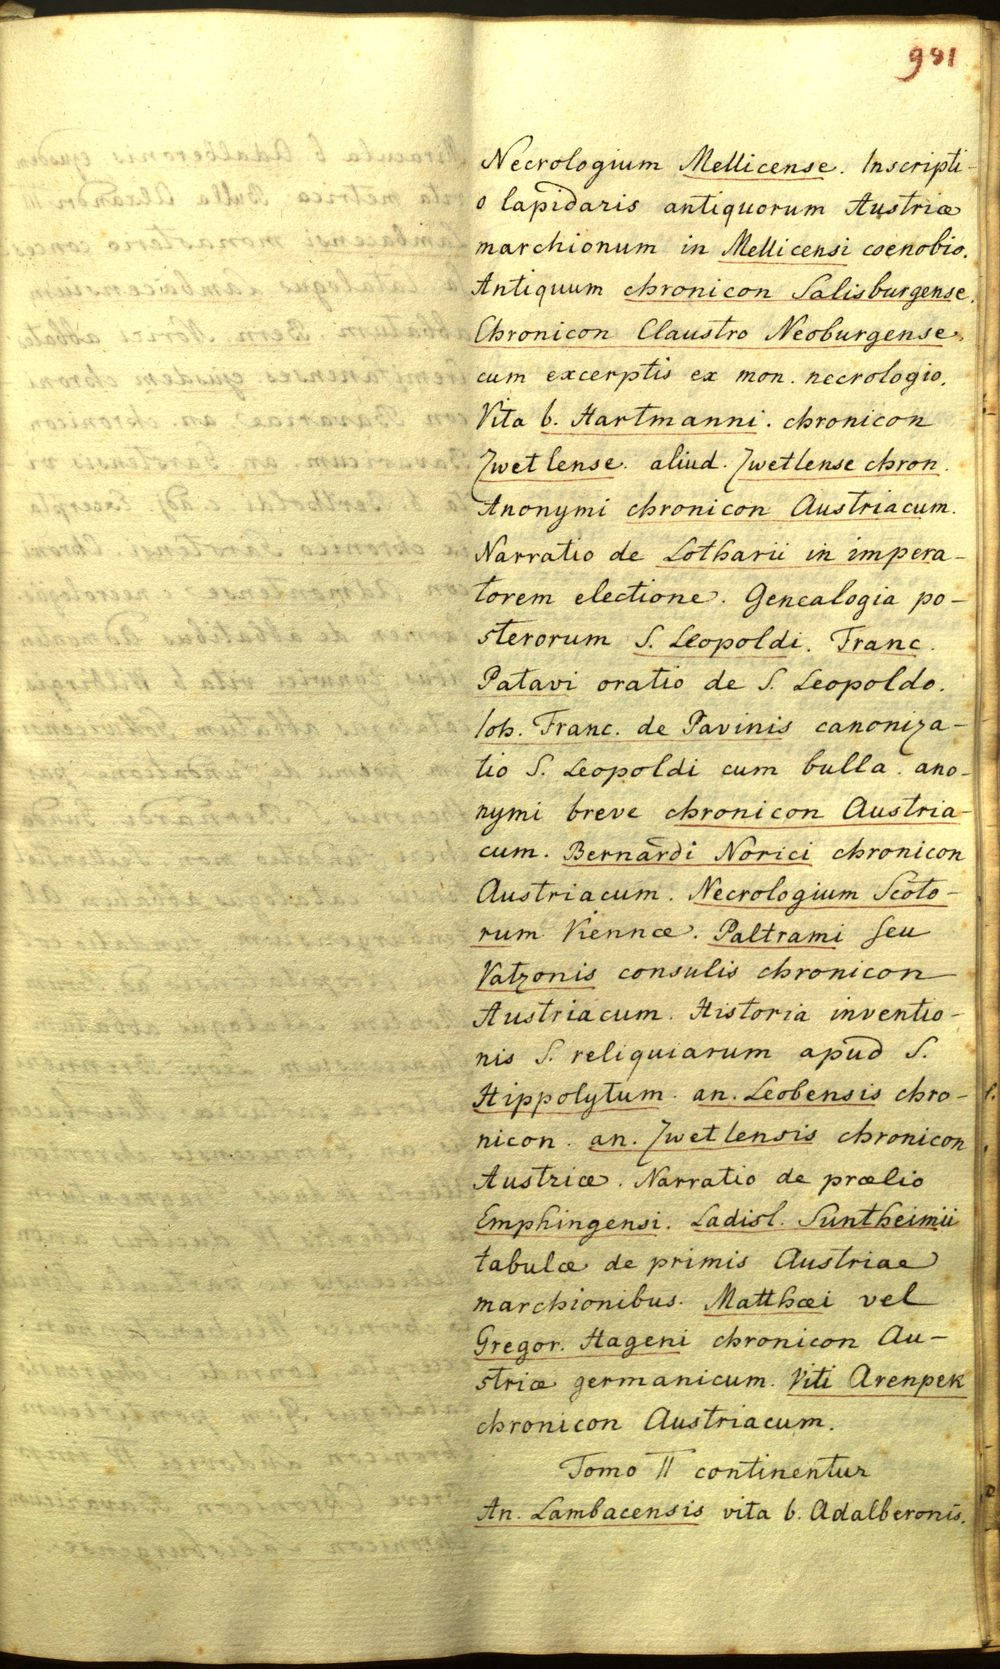 981
Necrologium Mellicense. Inscripti-
o lapidaris antiquorum Austriæ
marchionum in Mellicensi coenobio.
Antiquum chronicon Salisburgense.
Chronicon Claustro Neoburgense
cum excerptis ex mon. necrologio.
Vita b. Hartmanni. chronicon
Zwetlense. aliud. Zwetlense chron.
Anonymi chronicon Austriacum.
Narratio de Lotharii in impera-
torem electione. Genealogia po-
sterorum S. Leopoldi. Franc.
Patavi oratio de S. Leopoldo.
Ioh. Franc. de Pavinis canoniza-
tio S. Leopoldi cum bulla. ano-
nymi breve chronicon Austria-
cum. Bernardi Norici chronicon
Austriacum. Necrologium Scoto-
rum Viennæ. Paltrami seu
Vatzonis consulis chronicon
Austriacum. Historia inventio-
nis S. reliquiarum apud S.
Hippolytum. an. Leobensis chro-
nicon. an. Zwetlensis chronicon
Austriæ. Narratio de prœlio
Emphingensi. Ladisl. Suntheimii
tabulæ de primis Austriae
marchionibus. Matthæi vel
Gregor. Hageni chronicon Au-
striæ germanicum. Viti Arenpek
chronicon Austriacum.
Tomo II continentur
An. Lambacensis vita b. Adalberonis.